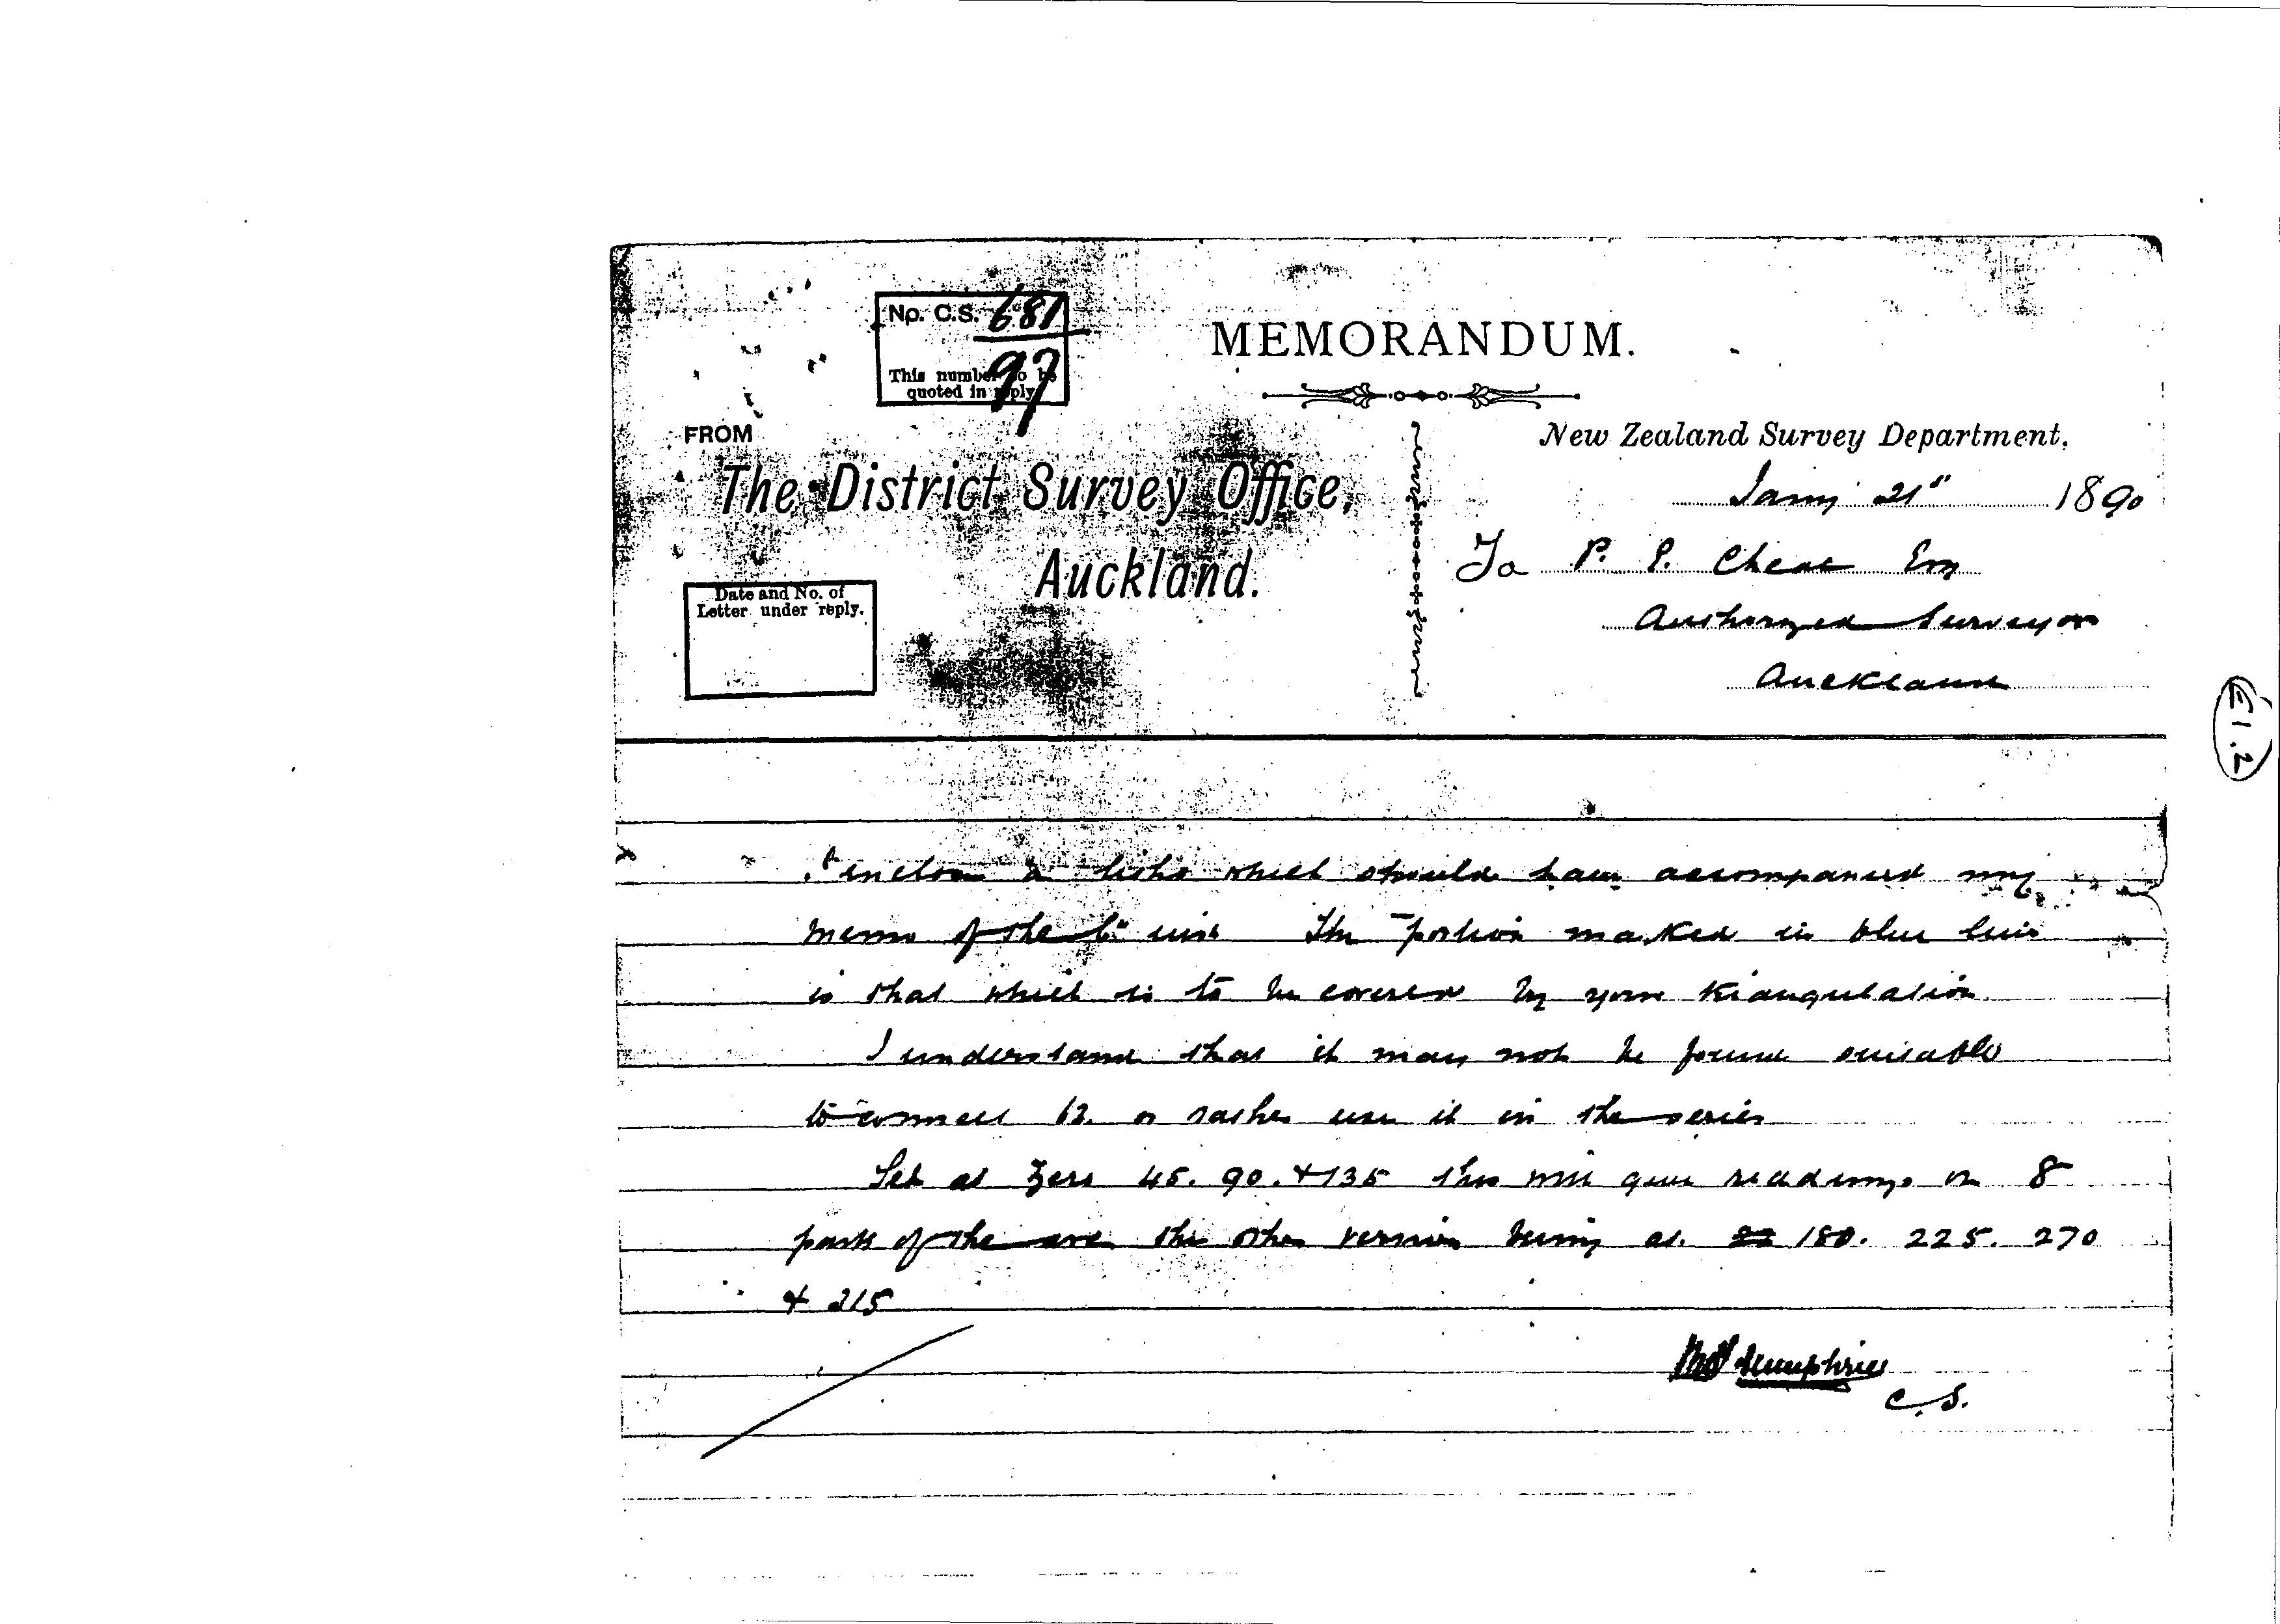 No. C.S. 681
97
This number to be
quoted in reply
MEMORANDUM.
FROM
New Zealand Survey Department.
The District Survey Office,
Auckland.
Jany 21" 1890
To P. E. Cheal Esq
Authorized Surveyor
Auckland
Date and No. of
Letter under reply.
E1.2
I enclose a litho which should have accompanied my
memo of the 6th inst The portion marked in blue line
is that which is to be covered by your triangulation
I understand that it may not be found suitable
to connect 62. or rather use it in the series
Set at Zero 45. 90. & 135 this will give readings on 8
parts of the arc the other vernier being at 180. 225. 270
& 315
Humphries
C.S.